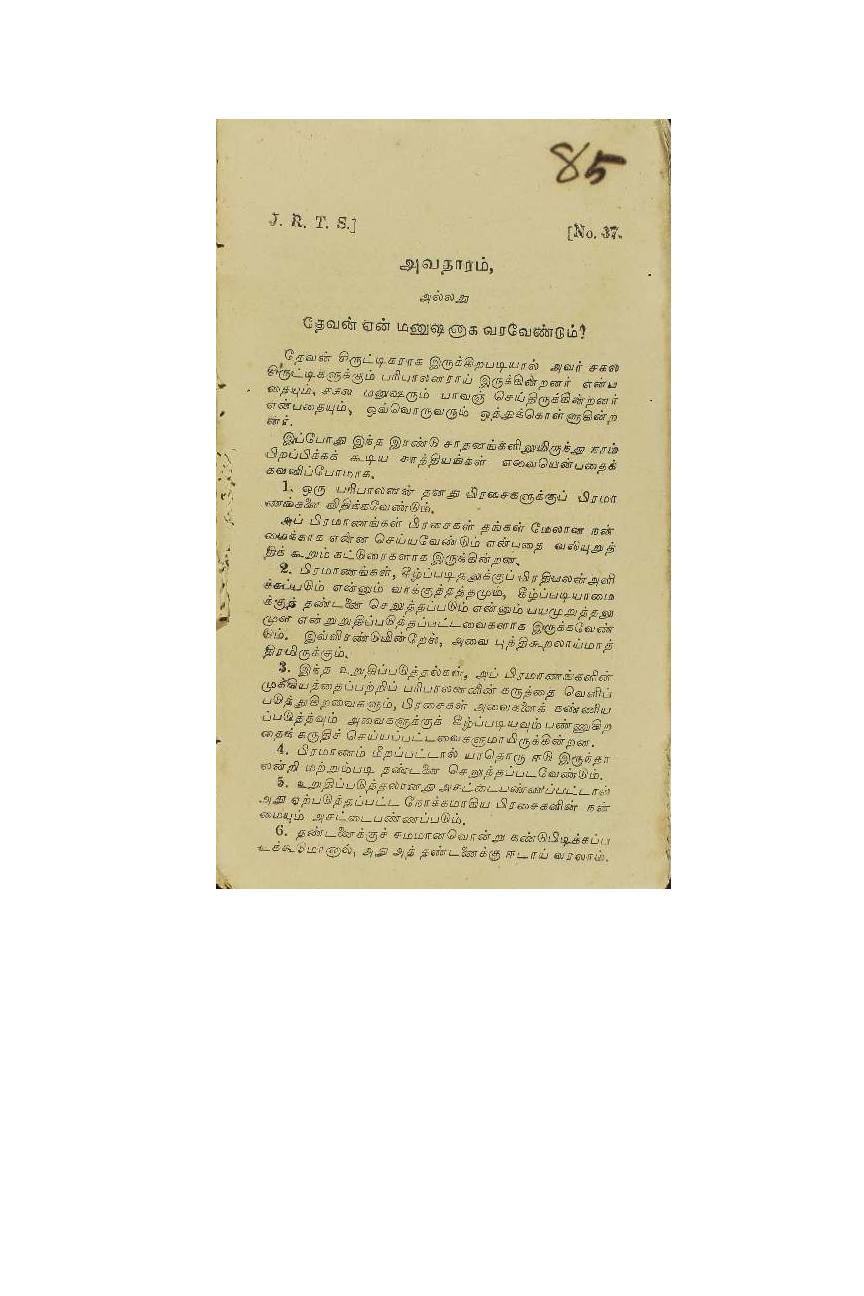 85
J. R. T. S.]
[No. 37.
அவதாரம்,
அல்லது
தேவன் ஏன் மனுஷனாக வரவேண்டும்?
தேவன் சிருட்டிகராக இருக்கிறபடியால் அவர் சகல
சிருட்டிகளுக்கும் பரிபாலனராய் இருக்கின்றனர் என்ப
தையும், சகல மனுஷரும் பாவஞ் செய்திருக்கின்றனர்
என்பதையும், ஒவ்வொருவரும் ஒத்துக்கொள்ளுகின்ற
னர்.
இப்போது இந்த இரண்டு சாதனங்களிலுமிருந்து நாம்
பிறப்பிக்கக் கூடிய சாத்தியங்கள் எவையென்பதைக்
கவனிப்போமாக.
1. ஒரு பரிபாலனன் தனது பிரசைகளுக்குப் பிரமா
ணங்களை விதிக்கவேண்டும்.
அப் பிரமாணங்கள் பிரசைகள் தங்கள் மேலான நன்
மைக்காக என்ன செய்யவேண்டும் என்பதை வலியுறுத்
திக் கூறும் கட்டுரைகளாக இருக்கின்றன.
2. பிரமாணங்கள், கீழ்ப்படிதலுக்குப் பிரதிபலன்அளி
க்கப்படும் என்னும் வாக்குத்தத்தமும், கீழ்ப்படியாமை
க்குத் தண்டனை செலுத்தப்படும் என்னும் பயமுறுத்தலு
முள என்றுறுதிப்படுத்தப்பட்டவைகளாக இருக்கவேண்
டும். இவ்விரண்டுமின்றேல், அவை புத்திகூறலாய்மாத்
திரமிருக்கும்.
3. இந்த உறுதிப்படுத்தல்கள், அப் பிரமாணங்களின்
முக்கியத்தைப்பற்றிப் பரிபாலனனின் கருத்தை வெளிப்
படுத்துகிறவைகளும், பிரசைகள் அவைகளைக் கண்ணிய
ப்படுத்தவும் அவைகளுக்குக் கீழ்ப்படியவும் பண்ணுகிற
தைக் கருதிச் செய்யப்பட்டவைகளுமாயிருக்கின்றன.
4. பிரமாணம் மீறப்பட்டால் யாதொரு ஈடு இருந்தா
லன்றி மற்றும்படி தண்டனை செலுத்தப்படவேண்டும்.
5. உறுதிப்படுத்தலானது அசட்டைபண்ணப்பட்டால்
அது ஏற்படுத்தப்பட்ட நோக்கமாகிய பிரசைகளின் நன்
மையும் அசட்டைபண்ணப்படும்.
6. தண்டனைக்குச் சமமானவொன்று கண்டுபிடிக்கப்ப
டக்கூடுமானால், அது அத் தண்டனைக்கு ஈடாய் வரலாம்.